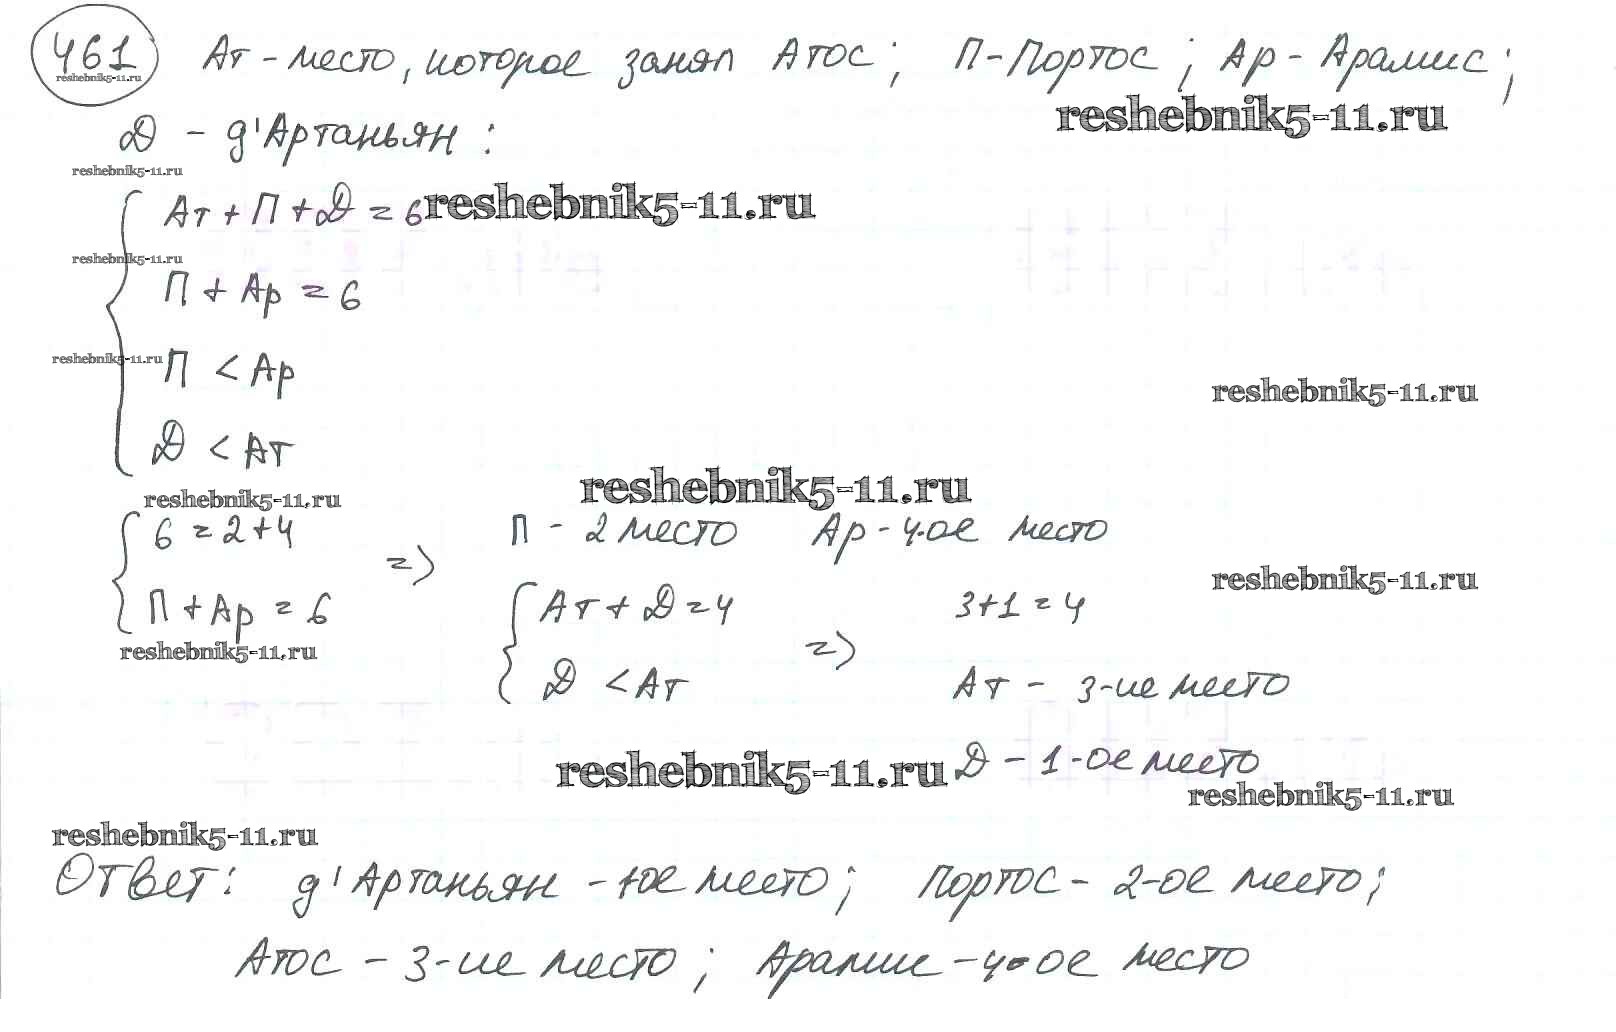 461 Ат - место, которое занял Атос; П - Портос; Ар - Арамис;
reshebnik5-11.ru
reshebnik5-11.ru
Д - д'Артаньян:
reshebnik5-11.ru
Ат + П + Д = 6 reshebnik5-11.ru
reshebnik5-11.ru
П + Ар = 6
reshebnik5-11.ru П < Ар
reshebnik5-11.ru
Д < Ат
reshebnik5-11.ru
reshebnik5-11.ru
6 = 2 + 4 => П - 2 место Ар - 4-ое место
reshebnik5-11.ru
П + Ар = 6 Ат + Д = 4 => 3 + 1 = 4
reshebnik5-11.ru
Д < Ат Ат - 3-ие место
reshebnik5-11.ru Д - 1-ое место
reshebnik5-11.ru
reshebnik5-11.ru
Ответ: д'Артаньян - 1ое место; Портос - 2-ое место;
Атос - 3-ие место; Арамис - 4-ое место